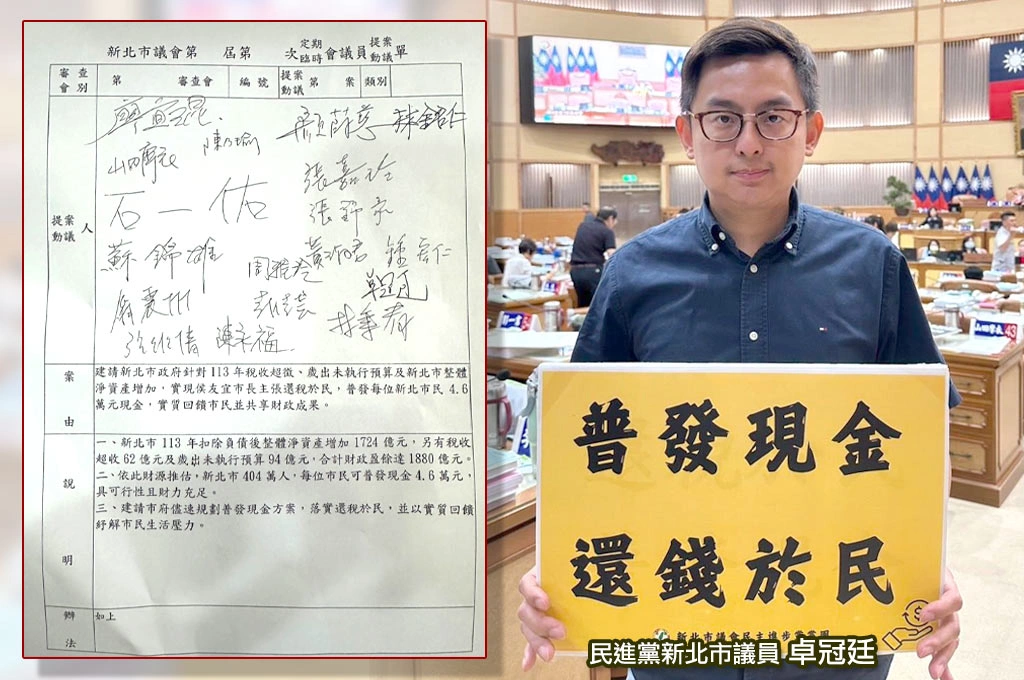 新北市議會第 屆第 次定期臨時會議員提案動議單
審查會別 第 審查會 編號 提案動議 第 案 類別
提案動議人
陳乃瑜
山田摩衣
顏蔚慈
張嘉玲
石一佑
蘇錦雄
鍾宏仁
周雅玲
卓冠廷
林秉宥
陳永福
案由
建請新北市政府針對113年稅收超徵、歲出未執行預算及新北市整體
淨資產增加,實現侯友宜市長主張還稅於民,普發每位新北市民 4.6
萬元現金,實質回饋市民並共享財政成果。
說明
一、新北市113年扣除負債後整體淨資產增加1724億元,另有稅收
超收62億元及歲出未執行預算94億元,合計財政盈餘達1880億元。
二、依此財源推估,新北市404萬人,每位市民可普發現金4.6萬元,
具可行性且財力充足。
三、建請市府儘速規劃普發現金方案,落實還稅於民,並以實質回饋
紓解市民生活壓力。
辦法
如上
43
普發現金
還錢於民
新北市議會民主進步黨黨團
民進黨新北市議員 卓冠廷